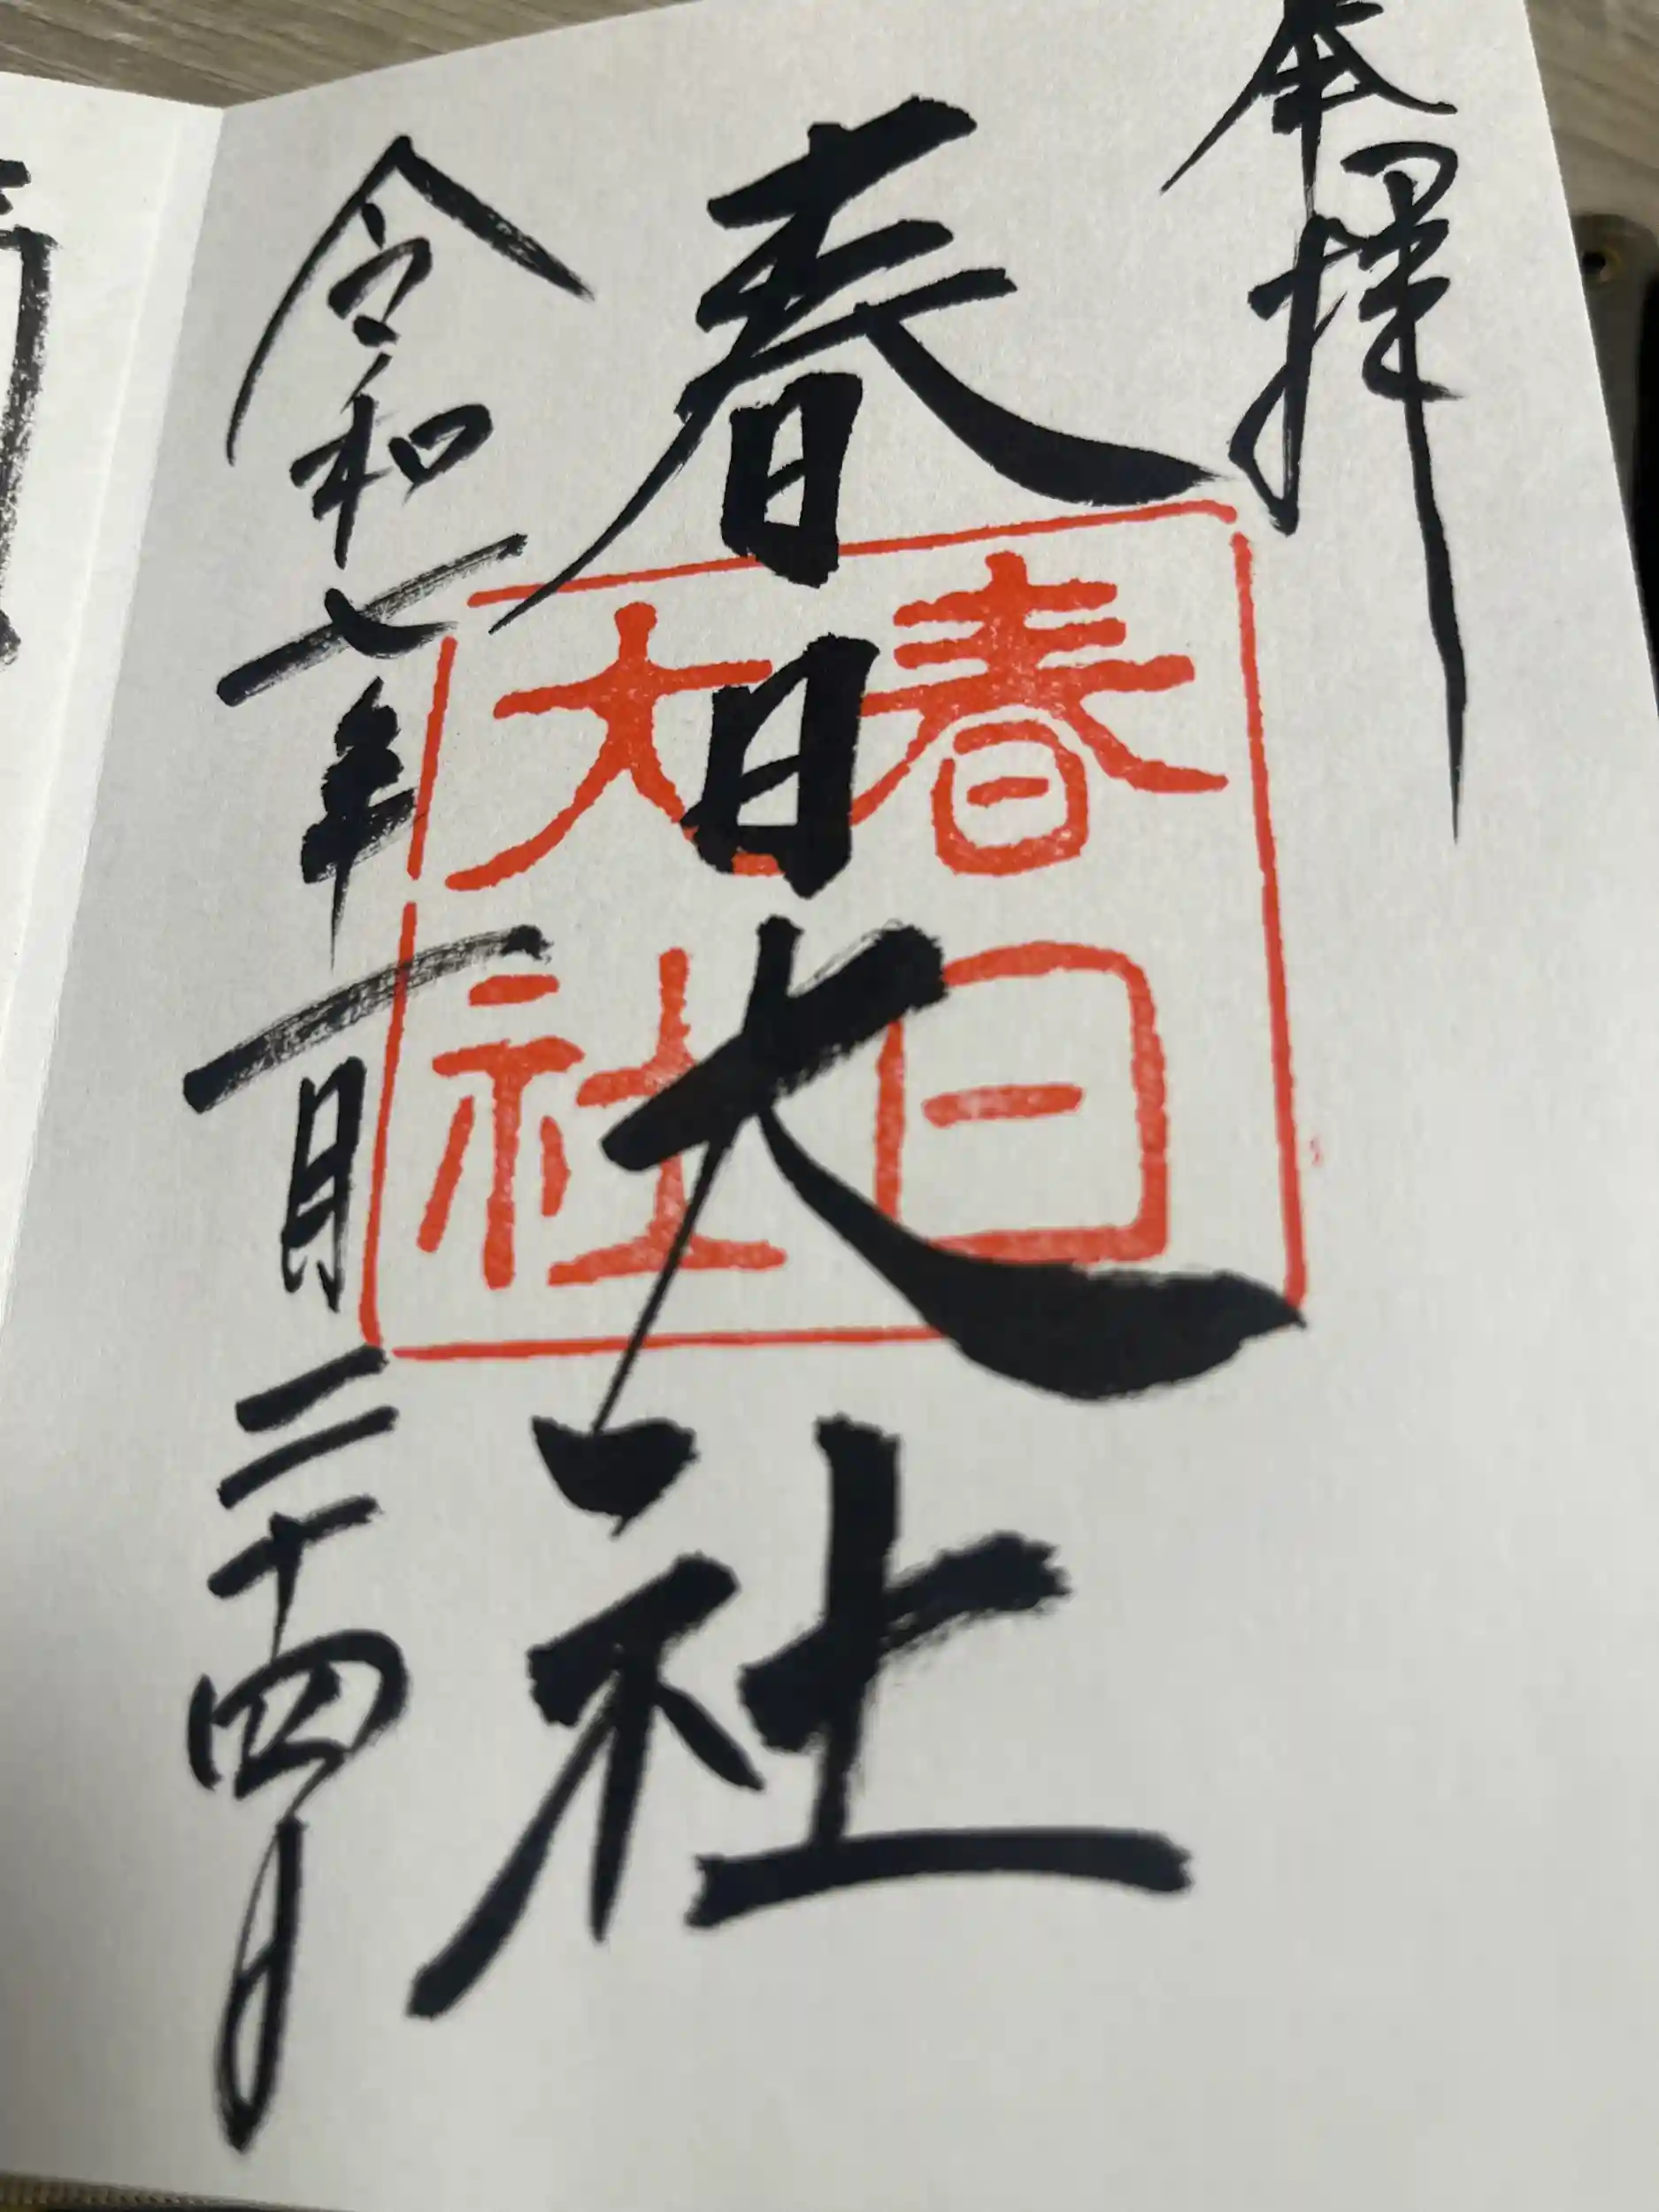 奉拝
春日大社
春日
大社
令和七年一月二十四日